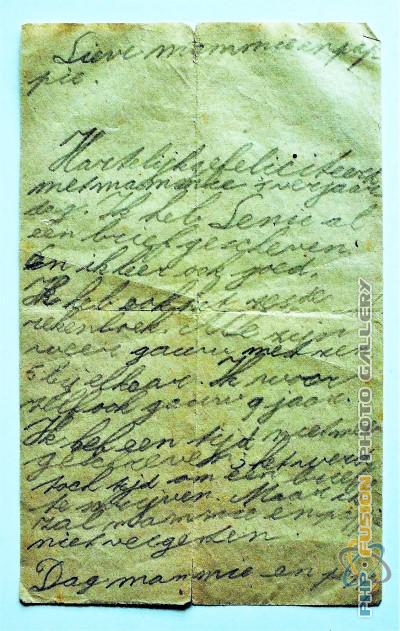 Lieve mammie en pap
pie.
Hartelijk gefeliciteerd
met mammie's verjaar
dag. Ik heb Lenie al
een brief geschreven
en ik leer ook goed.
Ik heb ook het
rekenboek
gauw met
bij elkaar. Ik word
zelf ook gauw 9 jaar.
Ik heb een tijd niet
geschreven, 't werd
toch tijd om een brief
te schrijven. Maar ik
zal mammie en pappie
niet vergeten.
Dag mammie en
PHP-FUSION PHOTO GALLERY